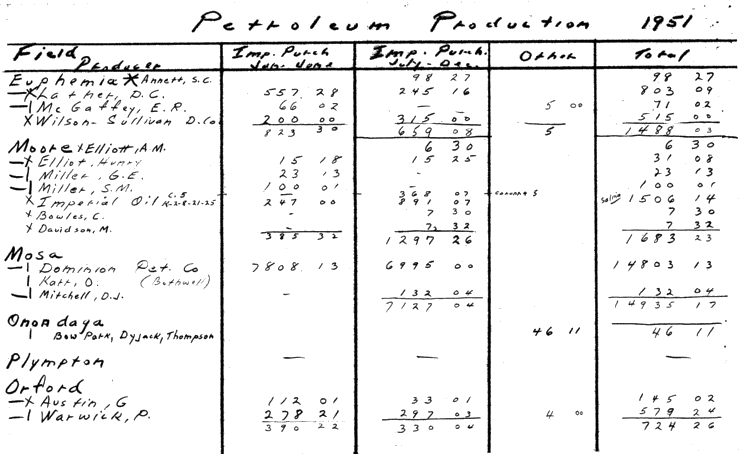 Petroleum Production 1951
Field Producer Imp. Purch Jan-June Imp. Purch. July-Dec. Other Total
Euphemia X Annett, S.C. 98 27 98 27
—X Lather, D.C. 557 28 245 16 803 09
—| McGaffey, E.R. 66 02 — 5 00 71 02
X Wilson-Sullivan D.Co 200 00 315 00 515 00
823 30 659 08 5 1488 03
Moore X Elliott, A.M. 6 30 6 30
—X Elliot, Henry 15 18 15 25 31 08
—| Miller, G.E. 23 13 - 23 13
—| Miller, S.M. 100 01 - 100 01
X Imperial Oil C-5 K-2-8-21-25 247 00 368 07 891 07 1506 14
X Bowles, C. - 7 30 7 30
X Davidson, M. - 7 32 7 32
385 32 1297 26 1683 23
Mosa
—| Dominion Pet. Co 7808 13 6995 00 14803 13
| Katt, O. (Bothwell)
—| Mitchell, D.J. - 132 04 132 04
7127 04 14935 17
Onondaga
| Bow Park, Dyjack, Thompson 46 11 46 11
Plympton — — —
Orford
—X Austin, G 112 01 33 01 145 02
—| Warwick, P. 278 21 297 03 4 00 579 24
390 22 330 04 724 26